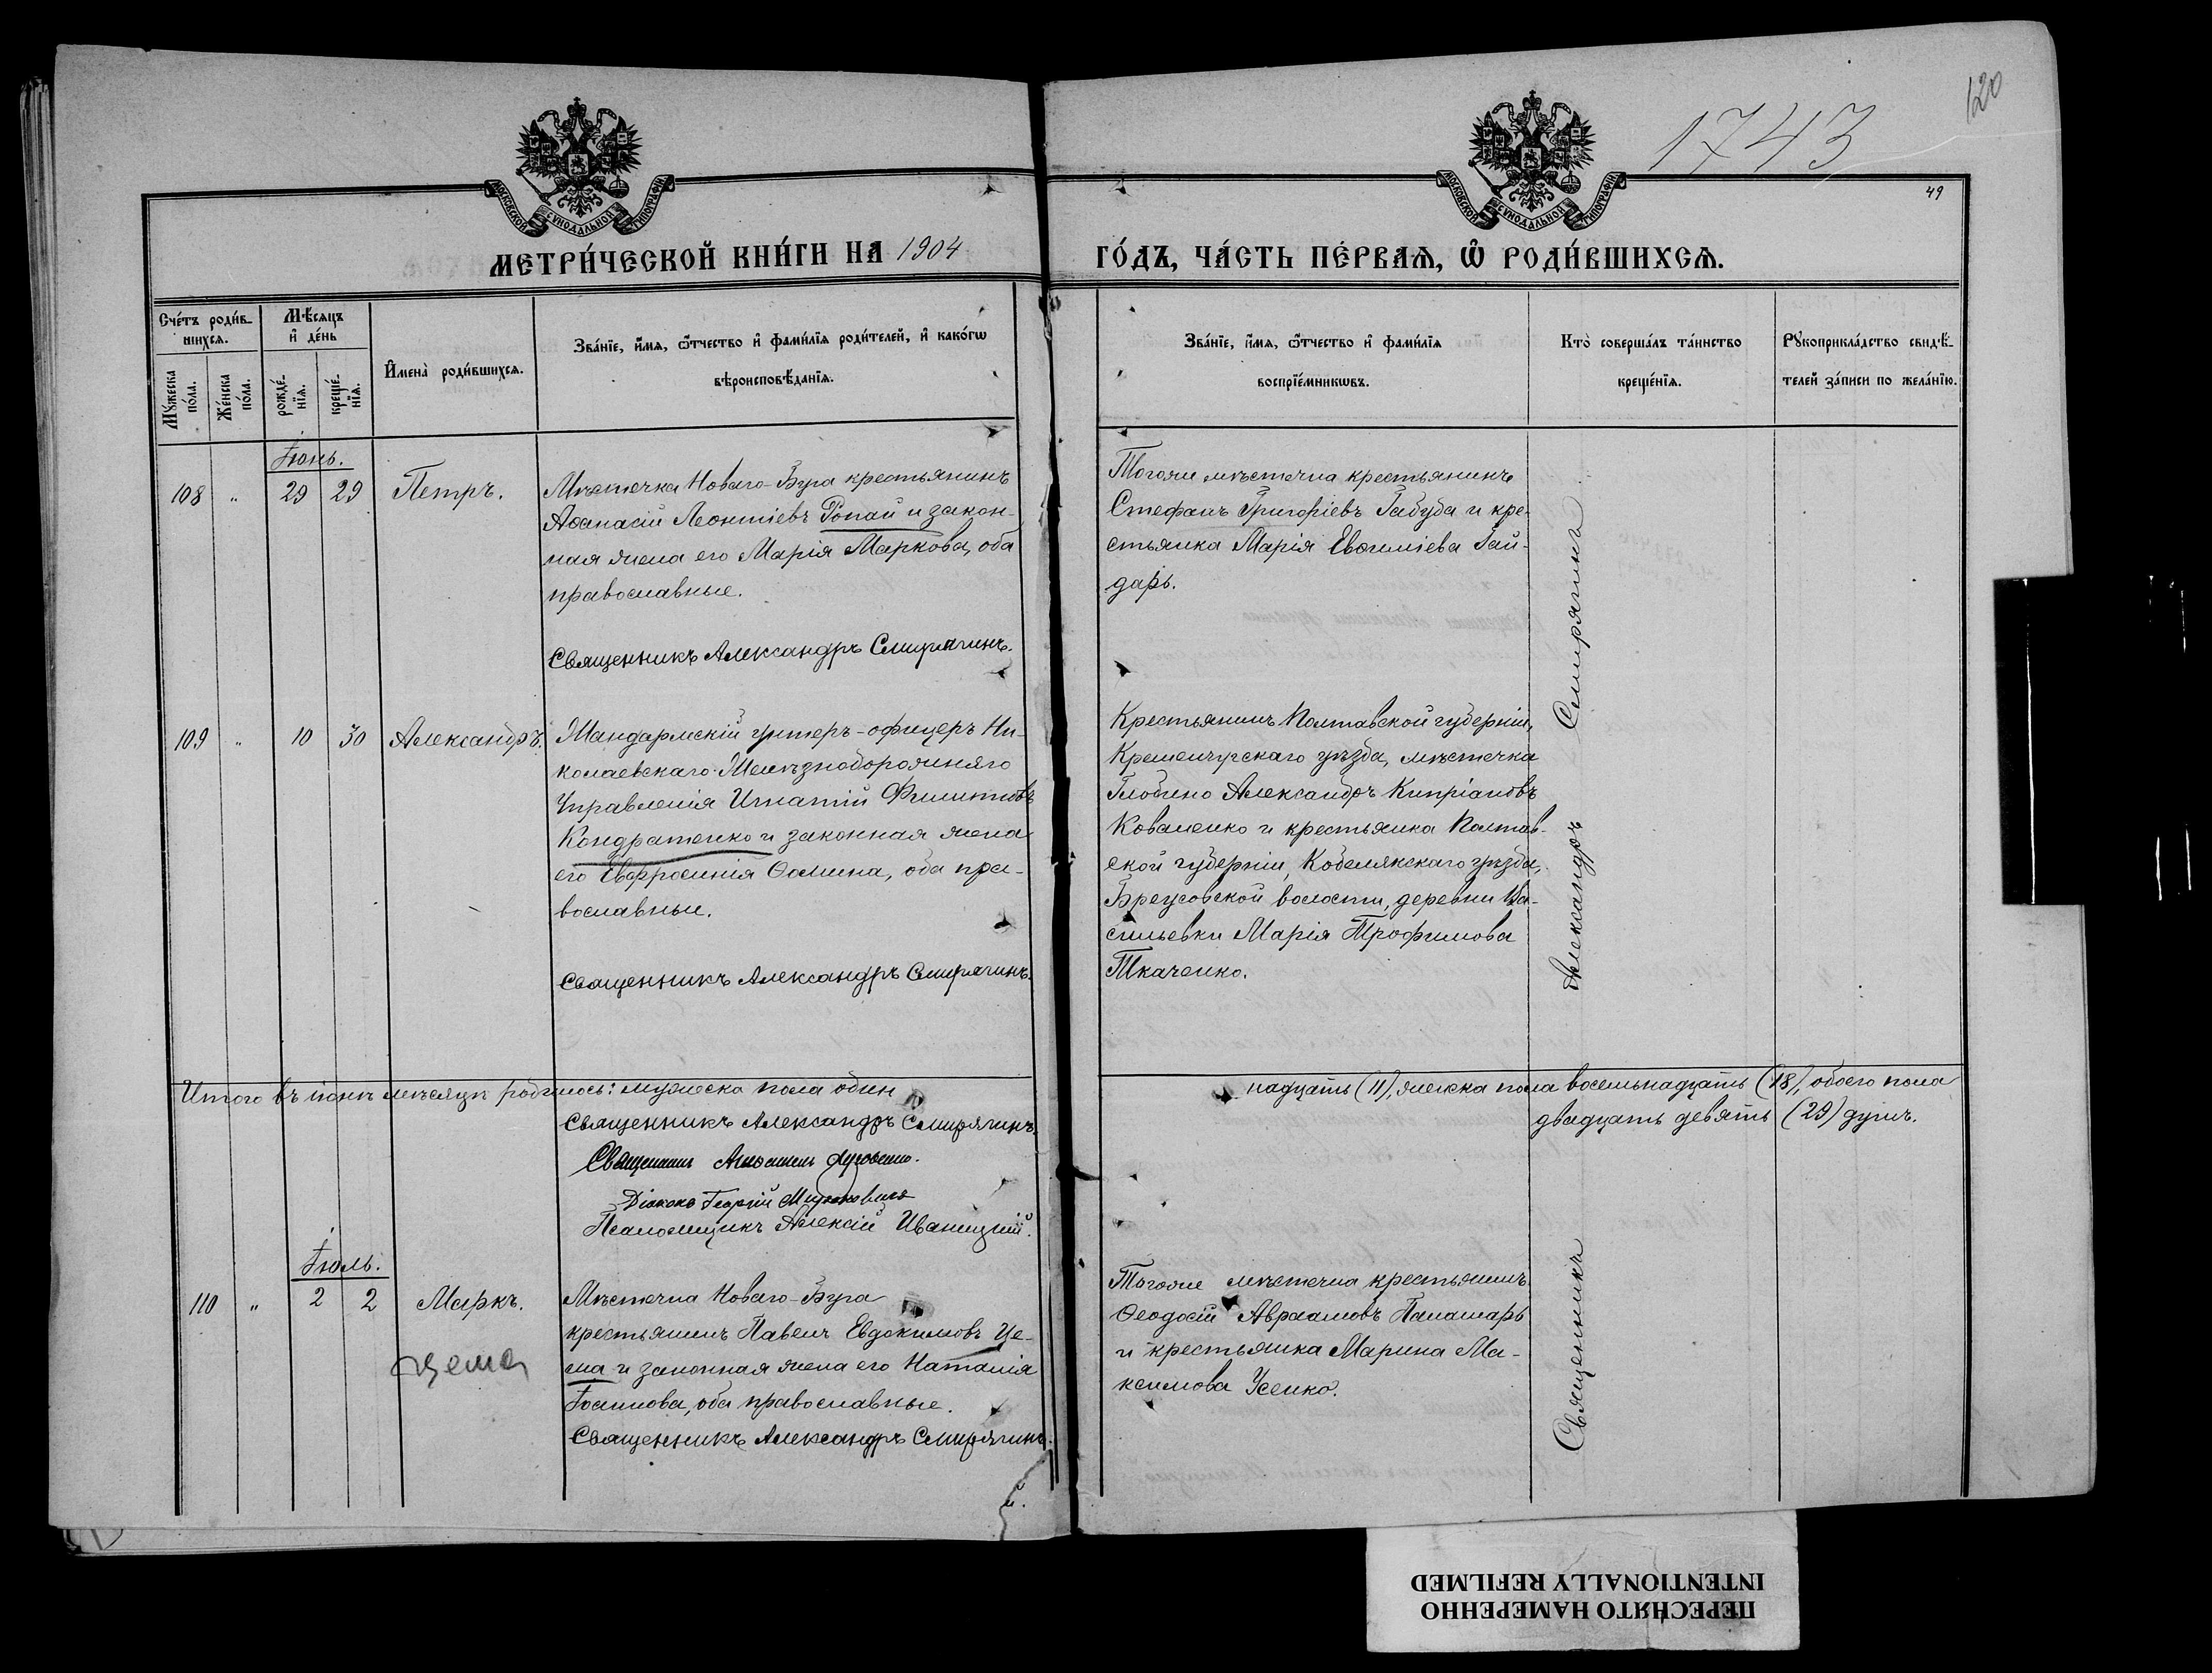 120
1743
49
МОСКОВСКОЙ СѴНОДАЛЬНОЙ ТИПОГРАФІИ
МОСКОВСКОЙ СѴНОДАЛЬНОЙ ТИПОГРАФІИ
МЕТРИ́ЧЕСКОЙ КНИ́ГИ НА 1904
ГО́ДЪ, ЧА́СТЬ ПЕ́РВАѦ, Ѡ҆ РОДИ́ВШИХСѦ.
Сче́тъ роди́в-
шихсѧ.
Мѣ́сѧцъ
и҆ де́нь
Мꙋ́жеска
по́ла.
Же́нска
по́ла.
рожде́-
нїѧ.
креще́-
нїѧ.
И҆мена̀ роди́вшихсѧ.
Зва́нїе, и҆́мѧ, ѻ҆́тчество и҆ фами́лїѧ роди́телей, и҆ како́гѡ
вѣроисповѣ́данїѧ.
Зва́нїе, и҆́мѧ, ѻ҆́тчество и҆ фами́лїѧ
воспрїе́мникѡвъ.
Кто̀ соверша́лъ та́инство
креще́нїѧ.
Рꙋкоприкла́дство свидѣ́-
телей за́писи по жела́нїю.
Іюнь.
108 " 29 29 Петръ.
Мѣстечка Новаго-Буга крестьянинъ
Аѳанасій Леонтіевъ Ропай и закон-
ная жена его Марія Маркова, оба
православные.
Священникъ Александръ Смирягинъ.
Тогоже мѣстечка крестьянинъ
Стефанъ Григоріевъ Габуда и кре-
стьянка Марія Евѳиміева Гай-
дарь.
109 " 10 30 Александръ.
Жандармскій унтеръ-офицеръ Ни-
колаевскаго Желѣзнодорожняго
Управленія Игнатій Филиповъ
Кондратенко и законная жена
его Евфросинія Ѳомина, оба пра-
вославные.
Священникъ Александръ Смирягинъ.
Крестьянинъ Полтавской губерніи,
Кременчугскаго уѣзда, мѣстечка
Глобино Александръ Кипріановъ
Коваленко и крестьянка Полтав-
ской губерніи, Кобелякскаго уѣзда,
Бреусовской волости, деревни Ва-
сильевки Марія Трофимова
Ткаченко.
Итого въ іюнѣ мѣсяцѣ родилось: мужеска пола один
надцать (11), женска пола восемьнадцать (18), обоего пола
двадцать девять (29) душъ.
Священникъ Александръ Смирягинъ.
Священникъ
Діаконъ Георгій
Псаломщикъ Алексій Иваницкій.
Іюль.
110 " 2 2 Маркъ.
Цема
Мѣстечка Новаго-Буга
крестьянинъ Павелъ Евдокимовъ Це-
ма и законная жена его Наталія
Іоаннова, оба православные.
Священникъ Александръ Смирягинъ.
Тогоже мѣстечка крестьянинъ
Ѳеодосій Авраамовъ Паламарь
и крестьянка Марина Ма-
ксимова Усенко.
Священникъ Александръ Смирягинъ
ПЕРЕСНЯТО НАМЕРЕННО
INTENTIONALLY REFILMED